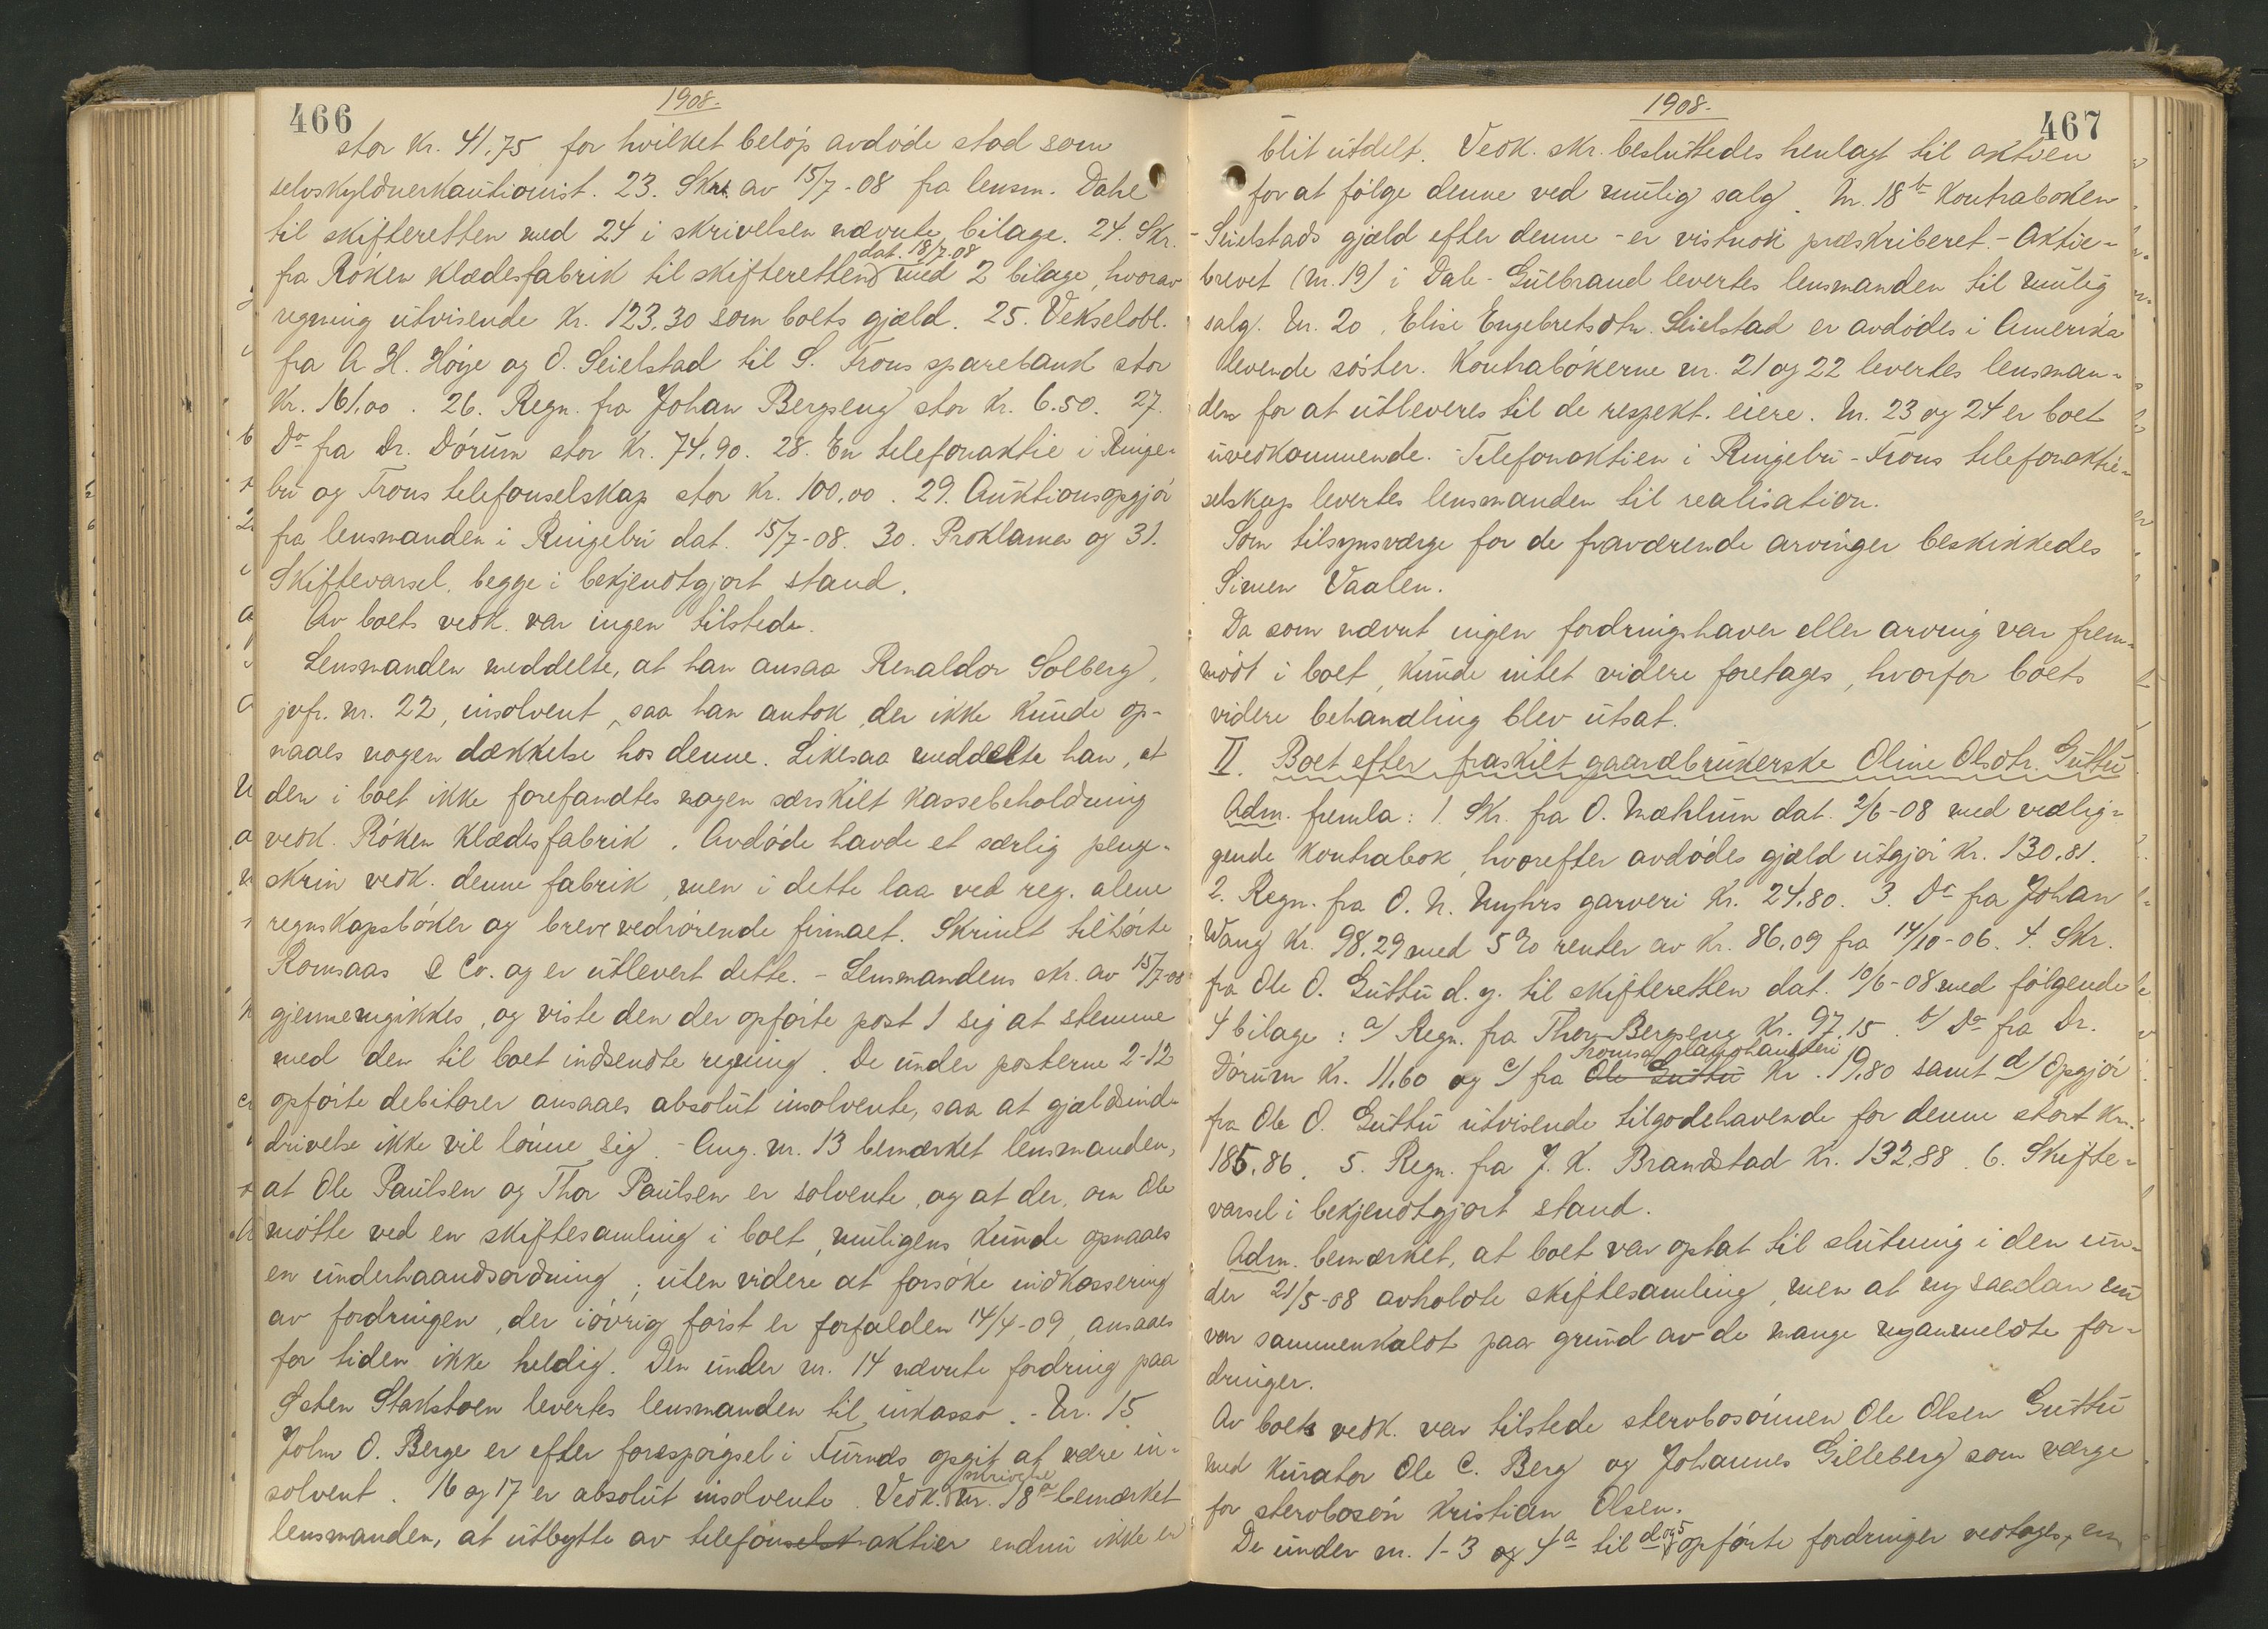 466
1908.
stor kr. 41,75 for hvilket beløp avdøde stod som
selvskyldnerkautionist. 23. Skr. av 15/7-08 fra lensm. Dahl
til skifteretten med 24 i skrivelsen nævnte bilage. 24. Skr.
dat. 18/7-08
fra Røken klædesfabrik til skifteretten med 2 bilage, hvorav
regning utvisende kr. 123,30 som boets gjæld. 25. Vekselobl.
fra A. H. Høye og O. Seielstad til S. Frons sparebank stor
kr. 161,00. 26. Regn. fra Johan Bergseng stor kr. 6.50. 27.
Do fra Dr. Dørum stor kr. 74,90. 28. En telefonaktie i Ringe-
bu og Frons telefonselskap stor kr. 100,00. 29. Auktionsopgjør
fra lensmanden i Ringebu dat. 15/7-08. 30. Proklama og 31.
Skiftevarsel, begge i bekjendtgjort stand.
Av boets vedk. var ingen tilstede.
Lensmanden meddelte, at han ansaa Renaldor Solberg,
jvfr. nr. 22, insolvent, saa han antok der ikke kunde op-
naaes nogen dækkelse hos denne. Likesaa meddelte han, at
der i boet ikke forefandtes nogen særskilt kassebeholdning
vedk. Røken klædesfabrik. Avdøde havde et særlig penge-
skrin vedk. denne fabrik, men i dette laa ved reg. alene
regnskapsbøker og breve vedrørende firmaet. Skrinet tilhørte
Romsaas & Co. og er utlevert dette. - Lensmandens skr. av 15/7-08
gjennemgikkes, og viste den der opførte post 1 sig at stemme
med den til boet indsendte regning. De under posterne 2-12
opførte debitorer ansaaes absolut insolvente, saa at gjældsind-
drivelse ikke vil lønne sig. - Ang. nr. 13 bemærket lensmanden,
at Ole Paulsen og Thor Paulsen er solvente, og at der, om Ole
møtte ved en skiftesamling i boet, muligens kunde opnaaes
en underhaandsordning; uten videre at forsøke indkassering
av fordringen, der iøvrig først er forfalden 14/4-09, ansaaes
for tiden ikke heldig. Den under nr. 14 nævnte fordring paa
Østen Stakstoen levertes lensmanden til inkasso. - Nr. 15
John O. Berge er efter forespørgsel i Furnes opgit at være in-
solvent. 16 og 17 er absolut insolvente. Vedk. nr. 18a bemærket
skrivelse
lensmanden, at utbytte av telefonselsk aktier endnu ikke er
1908.
467
blit utdelt. Vedk. skr. besluttedes henlagt til aktien
for at følge denne ved mulig salg. Nr. 18b kontraboken
- Seielstads gjæld efter denne - er vistnok præskriberet. - Aktie-
brevet (nr. 19) i Dale-Gulbrand levertes lensmanden til mulig
salg. Nr. 20, Elise Engebretsdtr. Seielstad er avdødes i Amerika
levende søster. Kontrabøkerne nr. 21 og 22 levertes lensman-
den for at utleveres til de respekt. eiere. Nr. 23 og 24 er boet
uvedkommende. - Telefonaktien i Ringebu-Frons telefonaktie-
selskap levertes lensmanden til realisation.
Som tilsynsværge for de fraværende arvinger beskikkedes
Simen Vaalen.
Da som nævnt ingen fordringshaver eller arving var frem-
mødt i boet, kunde intet videre foretages, hvorfor boets
videre behandling blev utsat.
II. Boet efter fraskilt gaardbrukerske Oline Olsdtr. Guttu
Adm. fremla: 1. Skr. fra O. Mæhlum dat. 2/6-08 med vedlig-
gende kontrabok, hvorefter avdødes gjæld utgjør kr. 130,81.
2. Regn. fra O. N. Myhrs garveri kr. 24,80. 3. Do fra Johan
Wang kr. 98,29 med 5% renter av kr. 86,09 fra 14/10-06. 4. Skr.
fra Ole O. Guttu d. y. til skifteretten dat. 10/6-08 med følgende
4 bilage: a/ Regn. fra Thor Bergseng kr. 97,15. b/ Do fra Dr.
Dørum kr. 11,60 og c/ fra Ole Guttu kr. 19,80 samt d/ Opgjør
fra Ole O. Guttu utvisende tilgodehavende for denne stort kr.
185,86. 5. Regn. fra J. K. Brandstad kr. 132,88. 6. Skifte-
varsel i bekjendtgjort stand.
Adm. bemærket, at boet var optat til slutning i den un-
der 21/5-08 avholdte skiftesamling, men at ny saadan nu
var sammenkaldt paa grund av de mange nyanmeldte for-
dringer.
Av boets vedk. var tilstede stervbosønnen Ole Olsen Guttu
med kurator Ole C. Berg og Johannes Gilleberg som værge
for stervbosøn Kristian Olsen.
De under nr. 1-3 og 4a til d og 5 opførte fordringer vedtages, em